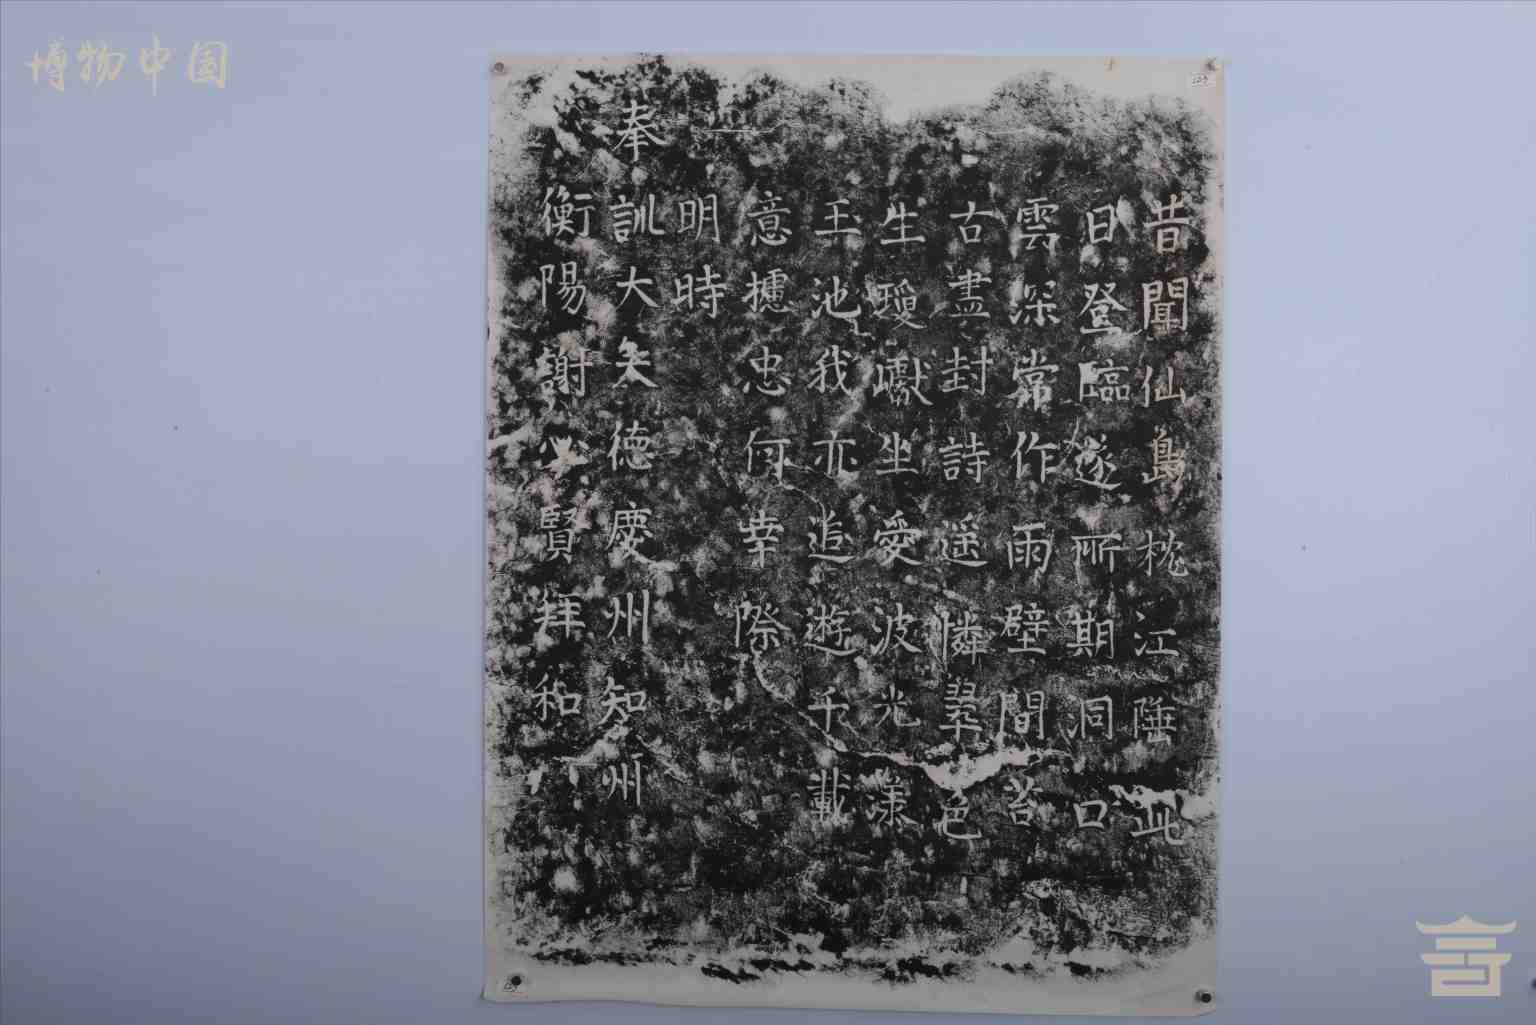 博物中国
昔聞仙島枕江陲此
日登臨遂所期洞口
雲深常作雨壁間苔
古盡封詩遥憐翠色
生瓊巘坐愛波光漾
玉池我亦追遊千載
意攄忠何幸際
明時
奉訓大夫德慶州知州
衡陽謝必賢拜和